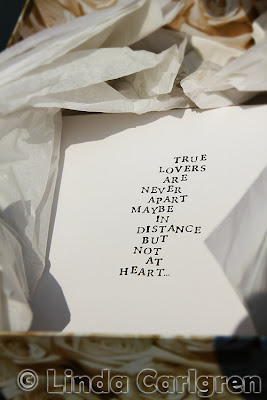 TRUE
LOVERS
ARE
NEVER
APART
MAYBE
IN
DISTANCE
BUT
NOT
AT
HEART...
© Linda Carlgren